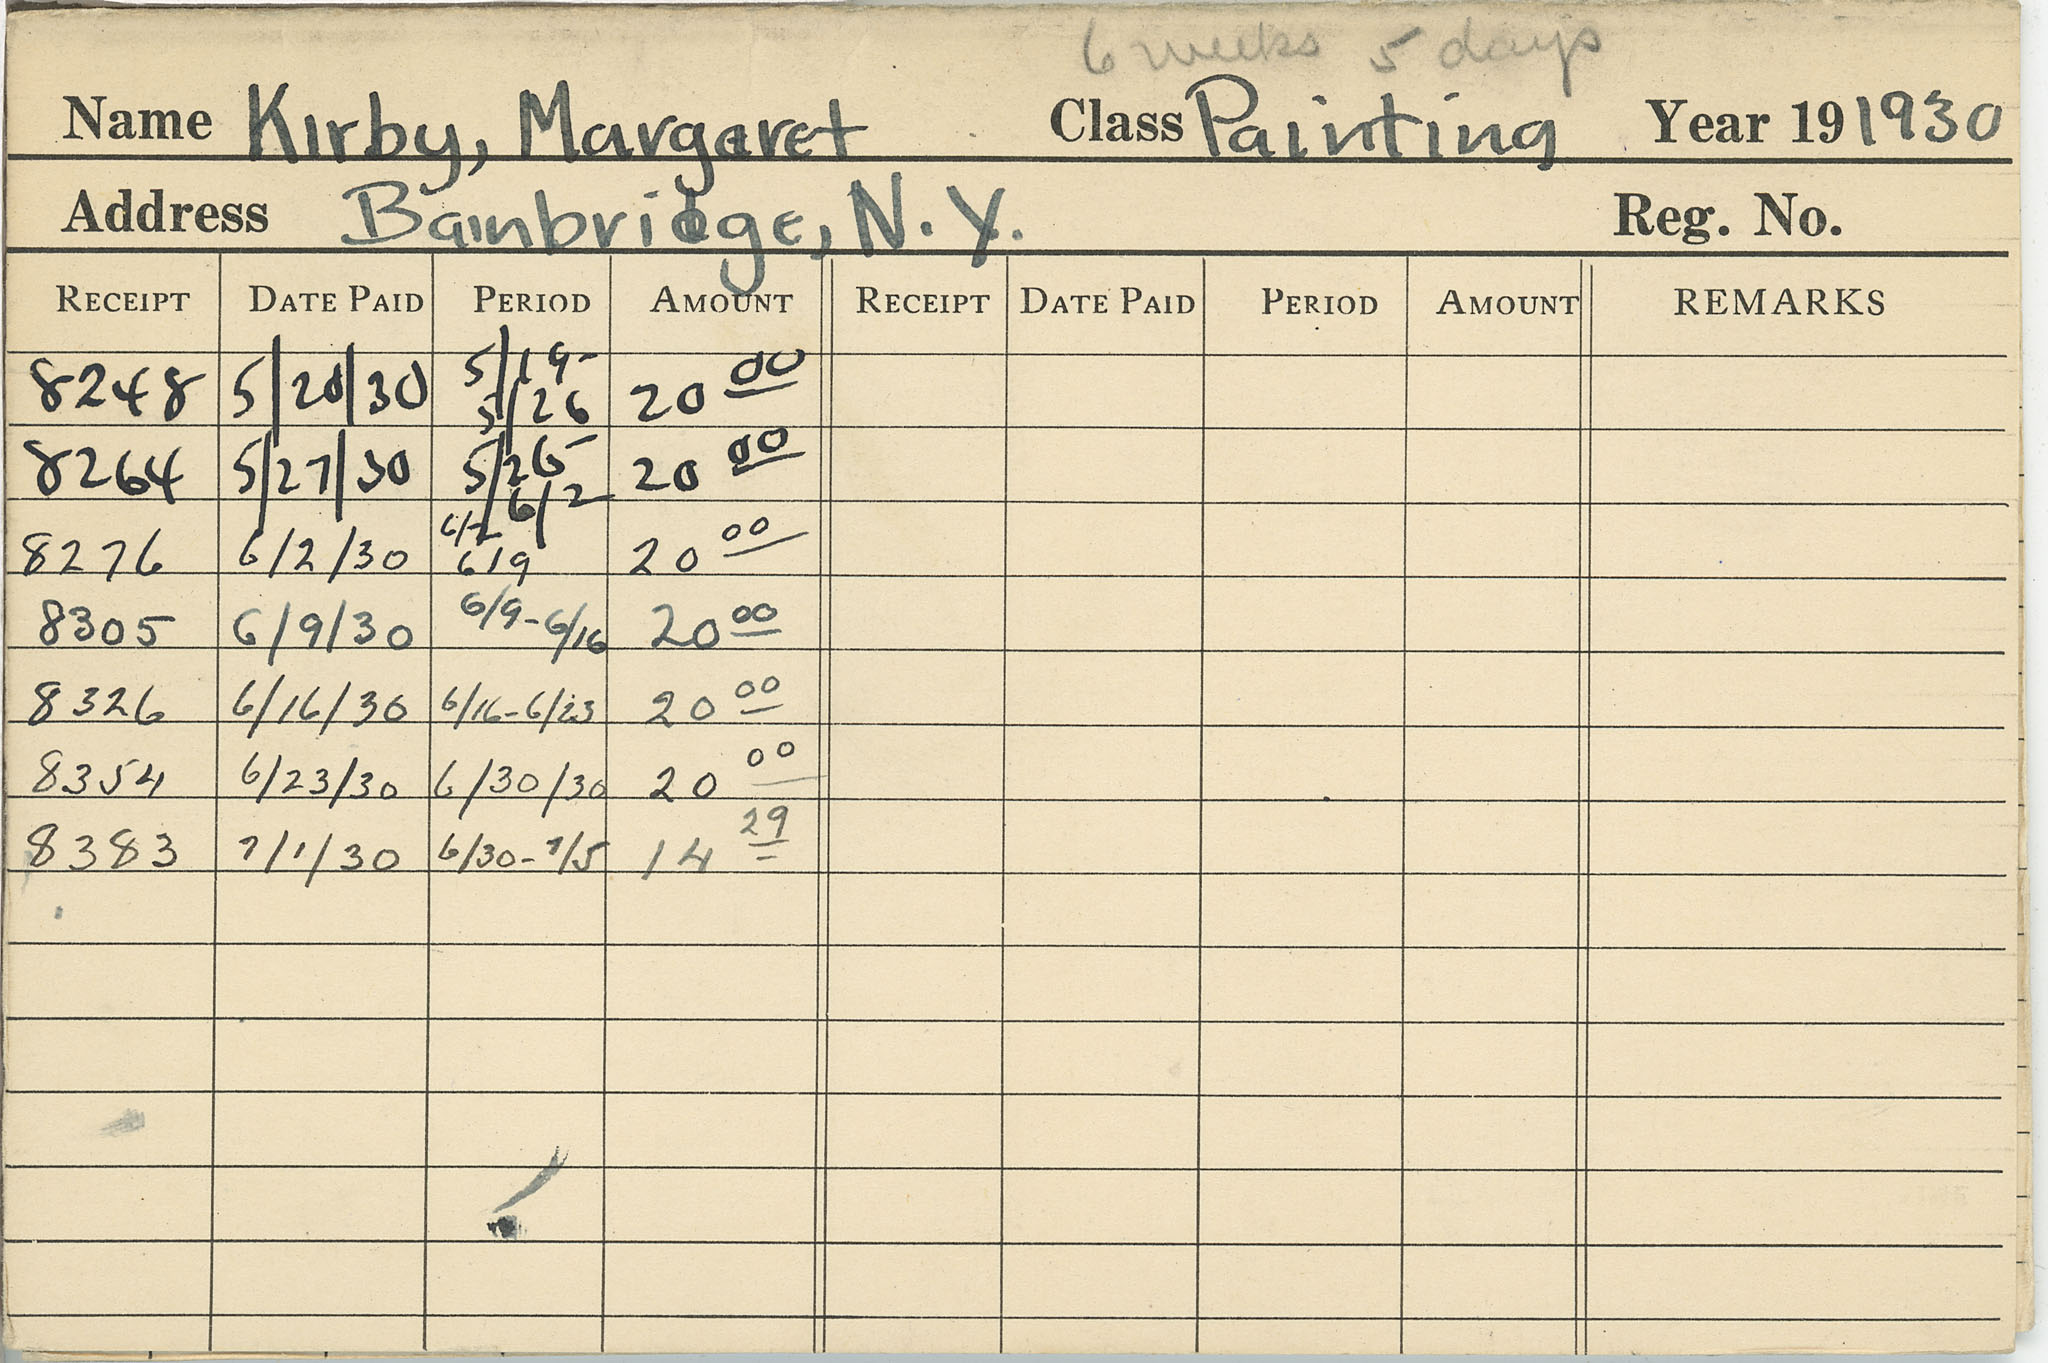 6 weeks 5 days
Name Kirby, Margaret Class Painting Year 19 1930
Address Bainbridge, N.Y. Reg. No.
RECEIPT DATE PAID PERIOD AMOUNT RECEIPT DATE PAID PERIOD AMOUNT REMARKS
8248 5/20/30 5/19- 5/26 20 00
8264 5/27/30 5/26- 6/2 20 00
8276 6/2/30 6/2 6/9 20 00
8305 6/9/30 6/9-6/16 20 00
8326 6/16/30 6/16-6/23 20 00
8354 6/23/30 6/30/30 20 00
8383 7/1/30 6/30-7/5 14 29